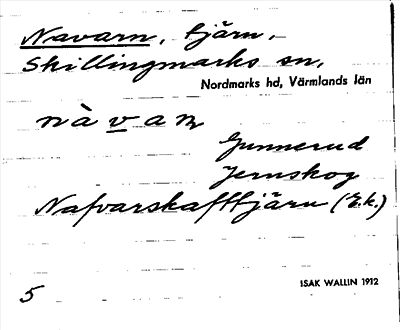 Navarn, tjärn,
Skillingmarks sn,
Nordmarks hd, Värmlands län
nàvaɳ
Gunnerud
Jernskog
Nafvarskafttjärn (E.k.)
ISAK WALLIN 1912
5